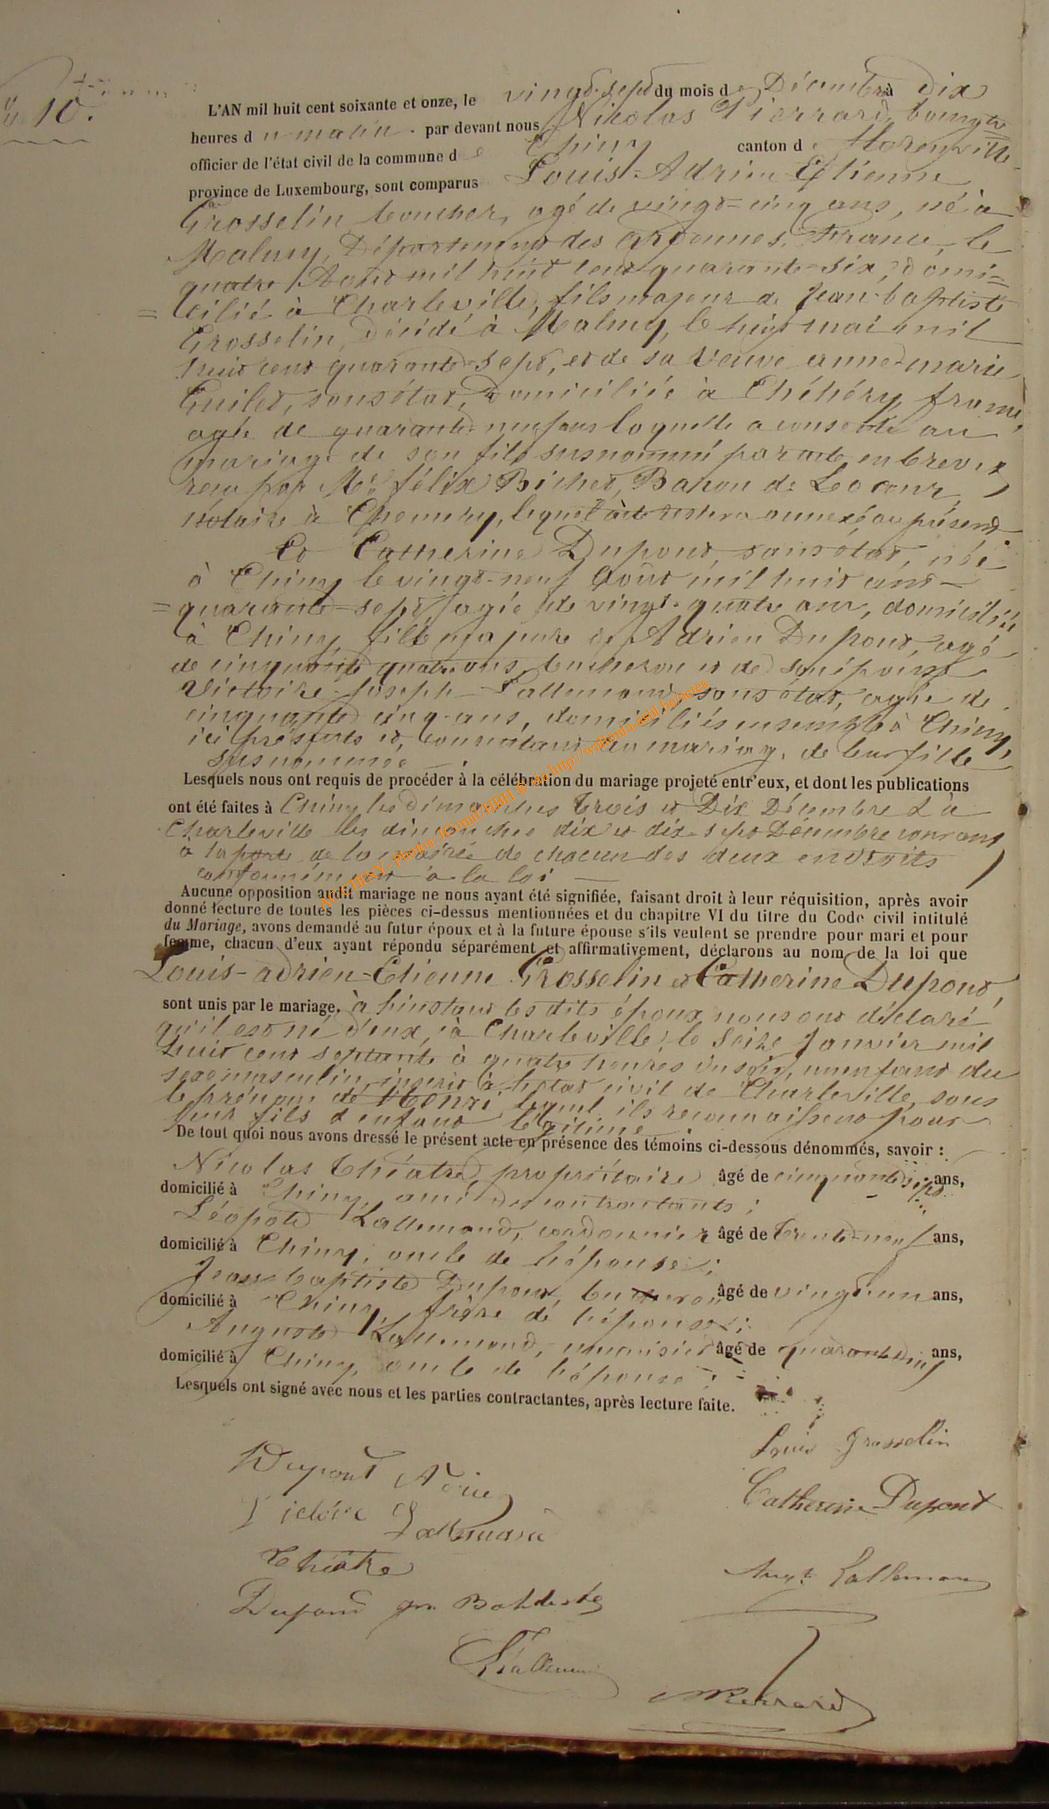 N° 10.
L'AN mil huit cent soixante et onze, le vingt-sept du mois de Décembre à Dix
heures du matin. par devant nous Nikolas Pierrard, bourgtre
officier de l'état civil de la commune de Chiny canton de Florenville
province de Luxembourg, sont comparus Louis-Adrien Etienne
Grosselin, boucher, agé de vingt-cinq ans, né à
Malmy, Département des Ardennes, France, le
quatre Août mil huit cent quarante-six, domi=
=cilié à Charleville, fils majeur de Jean-baptiste
Grosselin, décédé à Malmy, le huit mai mil
huit cent quarante-sept, et de sa veuve anne-marie
Guilet, sans état, domiciliée à Chéhéry, france,
agée de quarante-neuf ans laquelle a consenti au
mariage de son fils susnommé par acte en brevet
reçu par Me félix Bichet, Baron de Lecour,
Notaire à Chemery, lequel acte restera annexé au présent.
Et Catherine Dupont, sans état, née
à Chiny le vingt-neuf Août mil huit cent-
=quarante-sept, agée de vingt-quatre ans, domiciliée
à Chiny, fille majeure de Adrien Dupont, agé
de cinquante quatre ans, bucheron et de son épouse
Victoire-Joseph Lallemand sans état, agée de
cinquante cinq ans, domiciliés ensemble à Chiny,
ici présents et consentant au mariage de leur fille
susnommée.
Lesquels nous ont requis de procéder à la célébration du mariage projeté entr'eux, et dont les publications
ont été faites à Chiny les dimanches trois et Dix Décembre & à
Charleville les dimanches dix et dix-sept Décembre courant,
à la porte de la mairie de chacun des deux endroits
conformément à la loi
Aucune opposition audit mariage ne nous ayant été signifiée, faisant droit à leur réquisition, après avoir
donné lecture de toutes les pièces ci-dessus mentionnées et du chapitre VI du titre du Code civil intitulé
du Mariage, avons demandé au futur époux et à la future épouse s'ils veulent se prendre pour mari et pour
femme, chacun d'eux ayant répondu séparément et affirmativement, déclarons au nom de la loi que
Louis-adrien-Etienne Grosselin et Catherine Dupont,
sont unis par le mariage, à l'instant les dits époux nous ont déclaré
qu'il est né d'eux, à Charleville, le seize Janvier mil
huit cent septante à quatre heures du soir, un enfant du
sexe masculin inscrit à l'état civil de Charleville, sous
le prénom de Henri lequel ils reconnaissent pour
leur fils & enfant légitime.
De tout quoi nous avons dressé le présent acte en présence des témoins ci-dessous dénommés, savoir :
Nicolas théatre, propriétaire âgé de cinquante sept ans,
domicilié à Chiny, ami des contractants ;
Léopold Lallemand, cordonnier âgé de trente-neuf ans,
domicilié à Chiny, oncle de l'épouse ;
Jean-baptiste Dupont, bucheron âgé de vingt-un ans,
domicilié à Chiny, frère de l'épouse ;
Auguste Lallemand, menuisier âgé de quarante cinq ans,
domicilié à Chiny, oncle de l'épouse ;
Lesquels ont signé avec nous et les parties contractantes, après lecture faite.
Louis Grosselin
Dupont
Catherine Dupont
Lallemand
théâtre
Augte Lallemand
Dupond
Lallemand
NPierrard